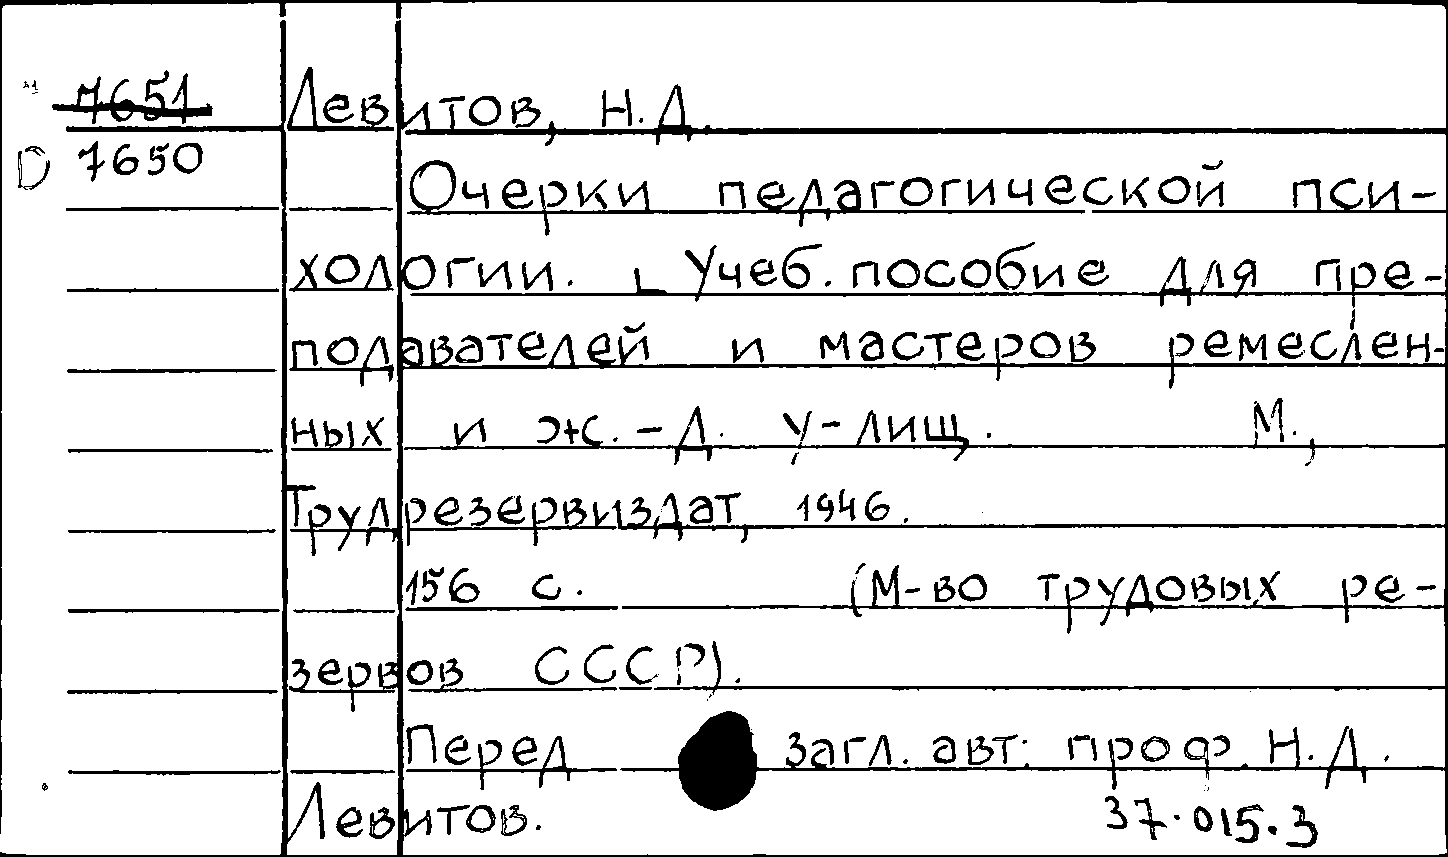 7651 Левитов, Н.Д.
D 7650
Очерки педагогической пси-
хологии. Учеб. пособие для пре-
подавателей и мастеров ремеслен-
ных и ж.-д. у-лищ. М.,
Трудрезервиздат, 1946.
156 с. (М-во трудовых ре-
зервов СССР).
Перед загл. авт: проф. Н.Д.
Левитов. 37.015.3